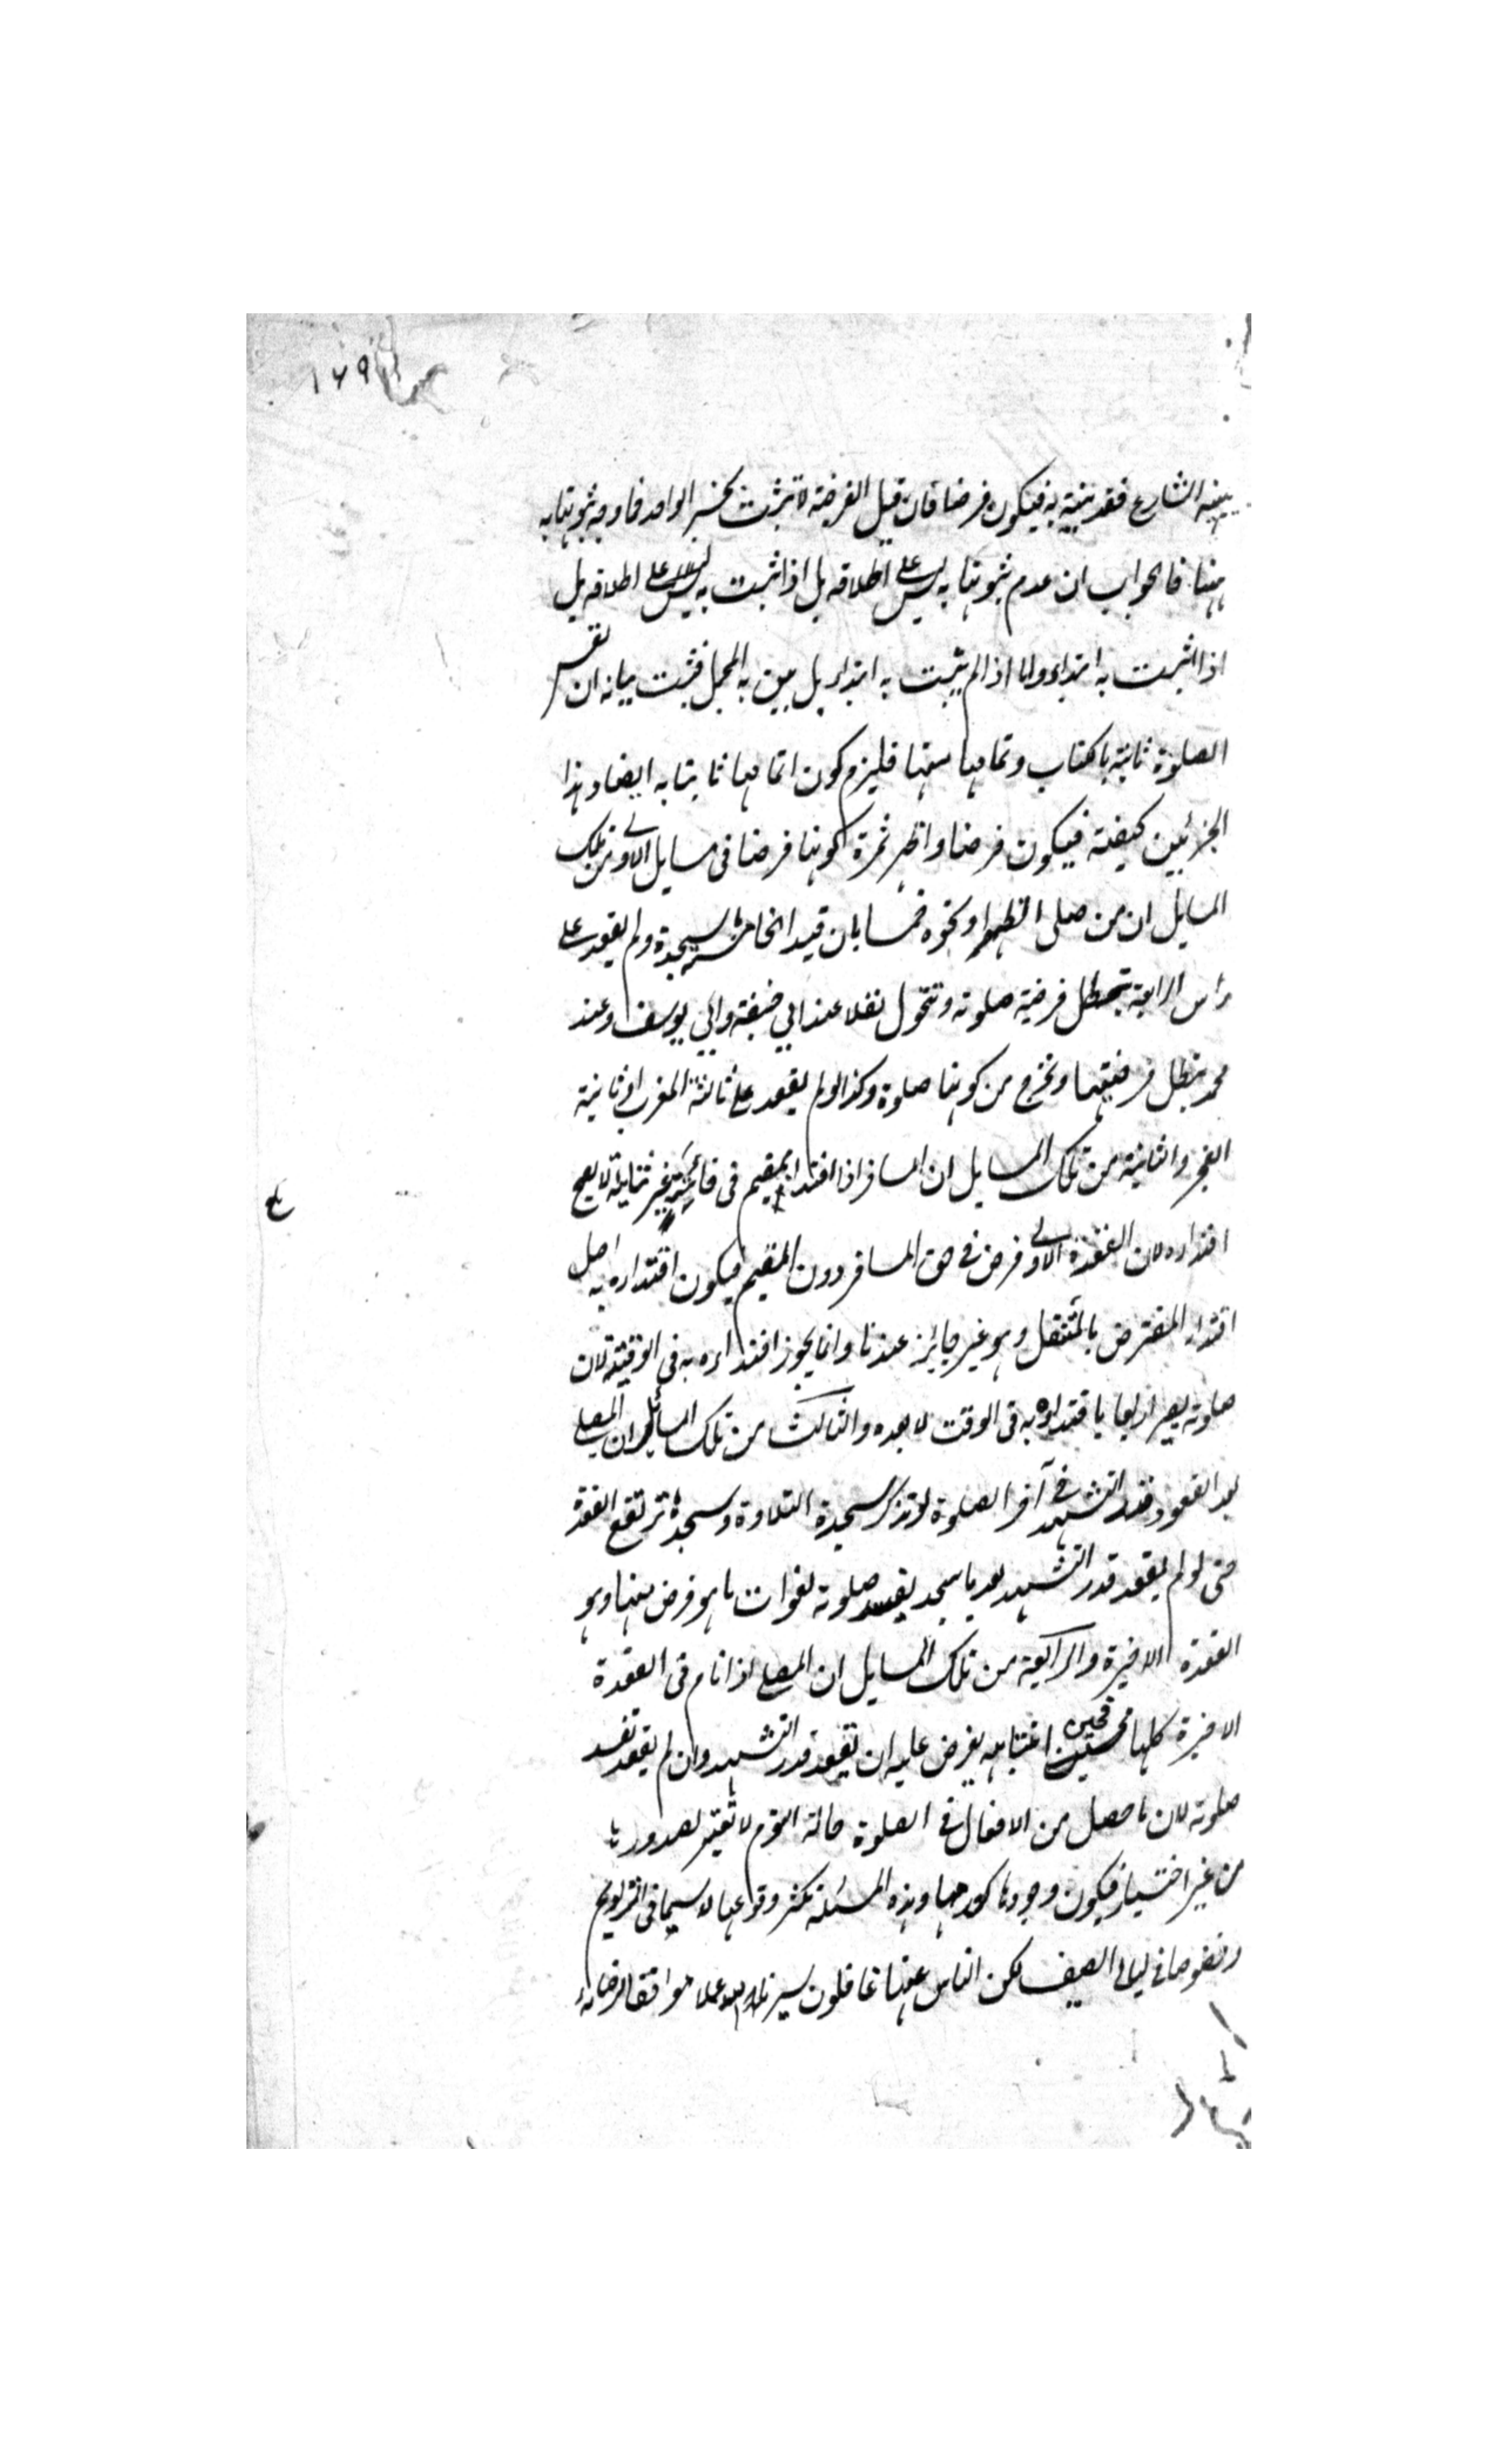 ١٦٩
يبينه الشارع فقد بينته به فيكون فرضا فان قيل الفرضية لا تثبت بخبر الواحد فما وجه ثبوتها به
ههنا فالجواب ان عدم ثبوتها به ليس على اطلاقه بل اذا ثبت به ليس على اطلاقه بل
اذا اثبت به ابتداء واما اذا لم يثبت به ابتداء بل بين به المجمل فثبت بيانه ان نفس
الصلوة ثابتة بالكتاب وتمامها منها فليزم كون اتمامها ثابتا به ايضا وهذا
الجزئيين كيفته فيكون فرضا واظهر ثمرة كونها فرضا فى مسايل الاولى من تلك
المسايل ان من صلى الظهر او نحوه خمسا بان قيد الخامسة بالسجدة ولم يقعد على
رأس الرابعة تبطل فرضية صلوته وتتحول نفلا عند ابي حنيفة وابي يوسف وعند
محمد يبطل فرضيتها وتخرج من كونها صلوة وكذا لو لم يقعد على ثالثة المغرب او ثانية
الفجر والثانية من تلك المسايل ان المسافر اذا اقتدا بمقيم فى فائتة غير ثنائية لا يصح
اقتداءه لان القعدة الاولى فرض في حق المسافر دون المقيم فيكون اقتداءه به اصل
اقتداء المفترض بالمتنفل وهو غير جائز عندنا وانما يجوز اقتداءه به فى الوقتية لان
صلوته يصير اربعا باقتداءه به فى الوقت لا بعده والثالث من تلك المسائل ان المصلى
بعد القعود قدر التشهد فى آخر الصلوة لو تذكر سجدة التلاوة وسجدها ترتفع القعدة
حتى لو لم يقعد قدر التشهد بعد ما سجد يفسد صلوته لفوات ما هو فرض منها وهو
القعدة الاخيرة والرابعة من تلك المسايل ان المصلى اذا نام فى القعدة
الاخيرة كلها فحين انتباهه يفرض عليه ان يقعد قدر التشهد وان لم يقعد تفسد
صلوته لان ما حصل من الافعال فى الصلوة حالة النوم لا تعتبر لصدورها
من غير اختيار فيكون وجودها كعدمها وهذه المسئلة تكثر وقوعها لا سيما فى التراويح
وخصوصا فى ليالى الصيف لكن الناس عنها غافلون يسر لنا الله عملا موافقا لرضائه